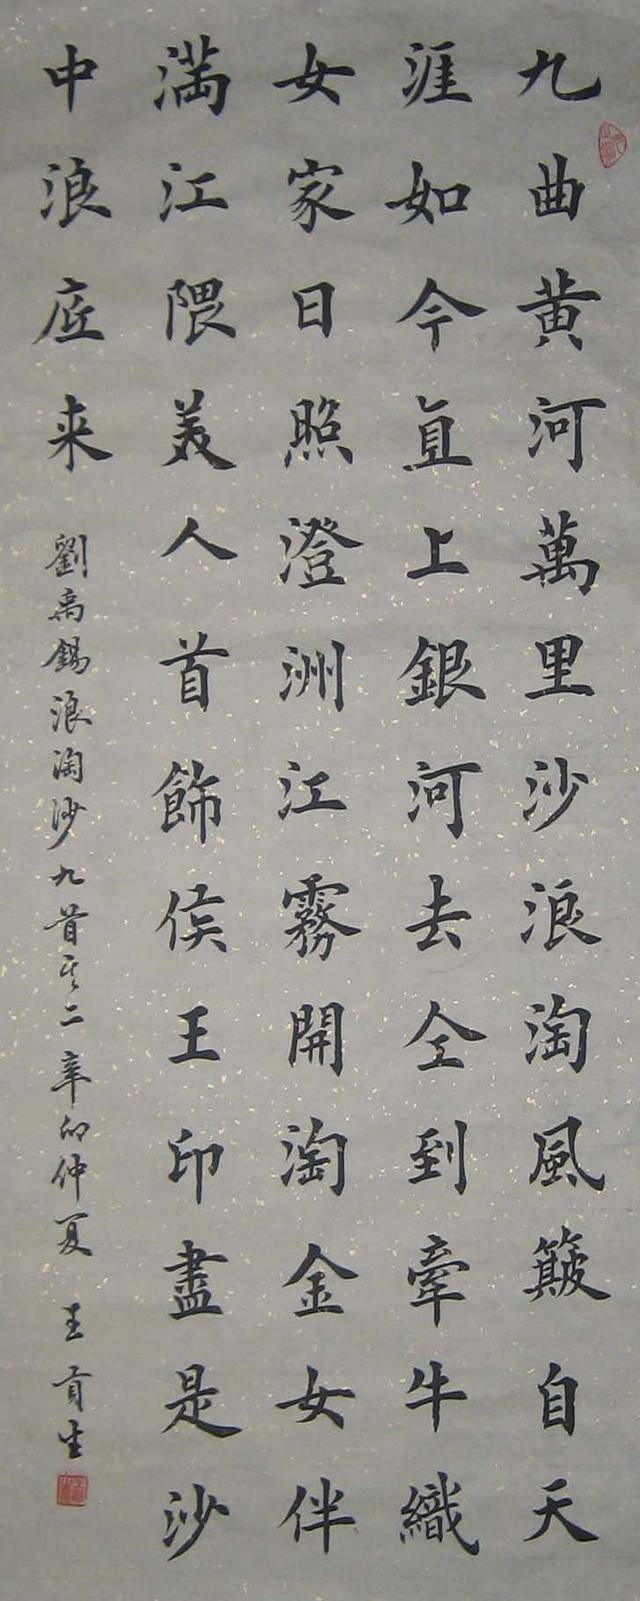 九曲黄河萬里沙浪淘風簸自天
涯如今直上銀河去仝到牽牛織
女家日照澄洲江霧開淘金女伴
满江隈美人首飾侯王印盡是沙
中浪底来
劉禹錫浪淘沙九首其二辛卯仲夏 王貢生